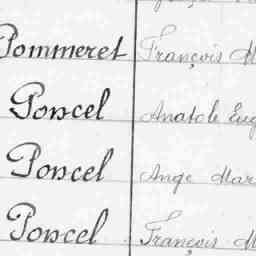 Pommeret François M
Poncel Anatole Eug
Poncel Ange Mar
Poncel François M